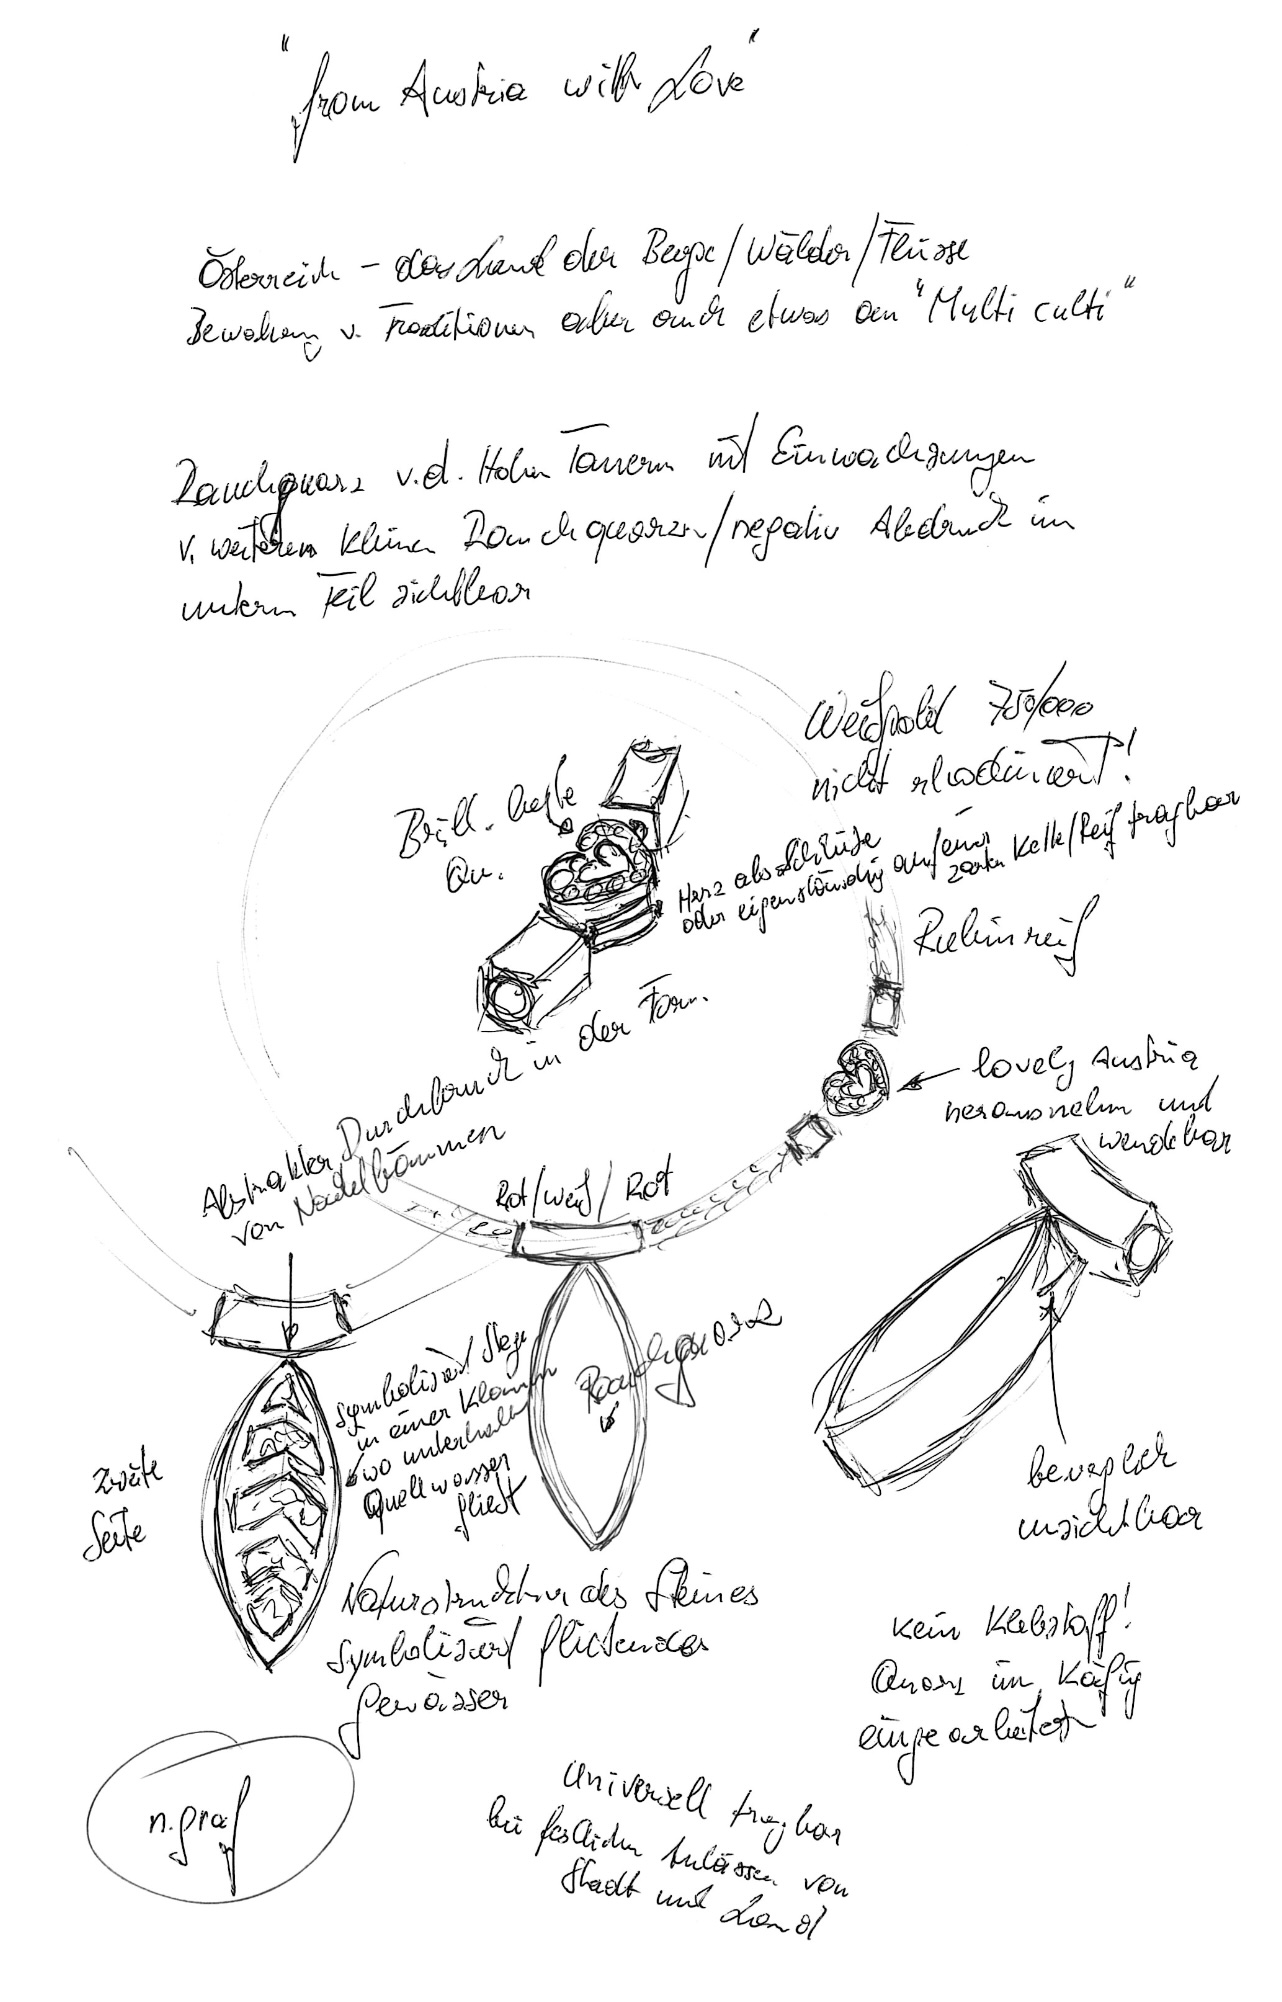 "from Austria with Love"
Österreich – das Land der Berge/Wälder/Flüsse
Bewahrung v. Traditionen aber auch etwas an "Multi culti"
Rauchquarz v.d. Hohen Tauern mit Einwachsungen
v. weiteren kleinen Rauchquarzen/negativ Abdruck im
unteren Teil sichtbar
Weißgold 750/000
nicht rhodiniert!
Brill. beste
Qu.
Herz als Schließe
oder eigenständig auf einer
zarten Kette/Reif tragbar
Rubinreif
lovely Austria
herausnehm und
wendebar
Abstrakter Durchbruch in der Form
von Nadelbäumen
Rot/weiß/Rot
Rauchquarz
symbolisiert Stege
in einer Klamm
wo unterhalb
Quellwasser
fließt
Zweite
Seite
beweglich
unsichtbar
Naturstruktur des Steines
symbolisiert fließendes
Gewässer
kein Klebstoff!
Quarz im Käfig
eingearbeitet
n.graf
Universell tragbar
bei festlichen Anlässen von
Stadt und Land